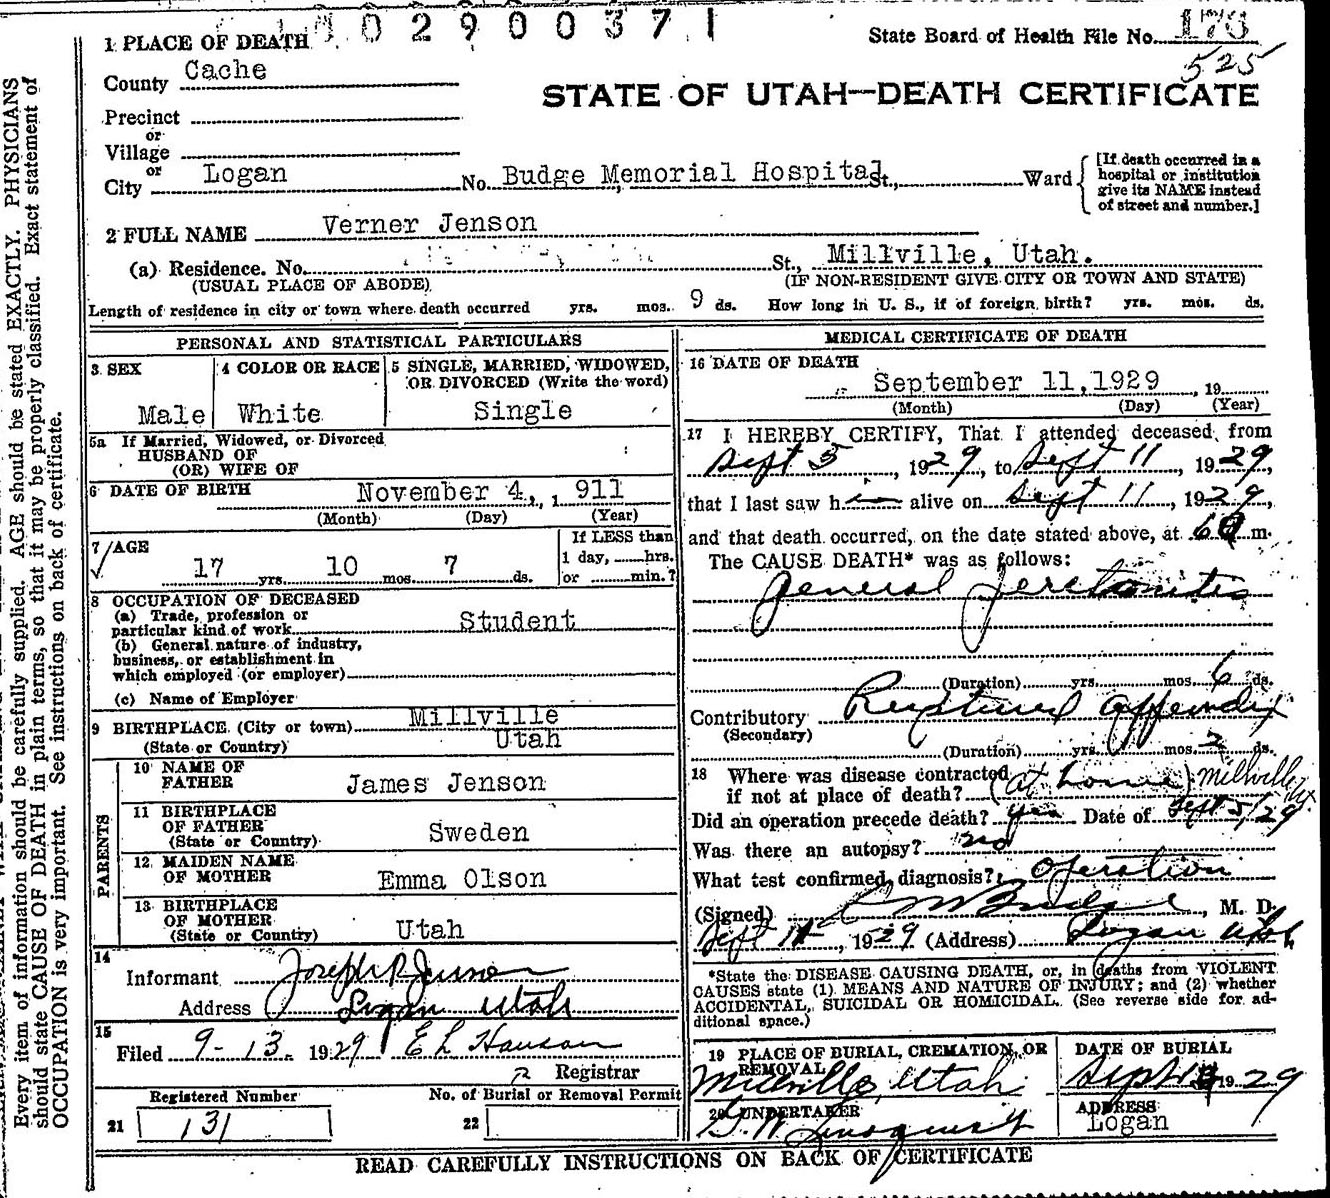 0 2 9 0 0 3 7 1
1 PLACE OF DEATH
State Board of Health File No. 173
525
County Cache
STATE OF UTAH—DEATH CERTIFICATE
Precinct
or
Village
or
City Logan No. Budge Memorial Hospital St., Ward
[If death occurred in a
hospital or institution
give its NAME instead
of street and number.]
2 FULL NAME Verner Jenson
(a) Residence. No. St., Millville, Utah.
(USUAL PLACE OF ABODE) (IF NON-RESIDENT GIVE CITY OR TOWN AND STATE)
Length of residence in city or town where death occurred yrs. mos. 9 ds. How long in U. S., if of foreign birth? yrs. mos. ds.
PERSONAL AND STATISTICAL PARTICULARS
3 SEX
Male
4 COLOR OR RACE
White
5 SINGLE, MARRIED, WIDOWED,
OR DIVORCED (Write the word)
Single
5a If Married, Widowed, or Divorced
HUSBAND OF
(OR) WIFE OF
6 DATE OF BIRTH November 4, 1 911
(Month) (Day) (Year)
7 AGE
17 yrs. 10 mos. 7 ds.
If LESS than
1 day, hrs.
or min.?
8 OCCUPATION OF DECEASED
(a) Trade, profession or
particular kind of work Student
(b) General nature of industry,
business, or establishment in
which employed (or employer)
(c) Name of Employer
9 BIRTHPLACE (City or town) Millville
(State or Country) Utah
PARENTS
10 NAME OF
FATHER James Jenson
11 BIRTHPLACE
OF FATHER
(State or Country) Sweden
12 MAIDEN NAME
OF MOTHER Emma Olson
13 BIRTHPLACE
OF MOTHER
(State or Country) Utah
14
Informant Joseph R Jenson
Address Logan Utah
15
Filed 9-13. 1929 E L Hanson
Registrar
Registered Number
21 131
No. of Burial or Removal Permit
22
MEDICAL CERTIFICATE OF DEATH
16 DATE OF DEATH
September 11,1929, 19
(Month) (Day) (Year)
17 I HEREBY CERTIFY, That I attended deceased from
Sept 5, 1929, to Sept 11, 1929,
that I last saw him alive on Sept 11, 1929,
and that death occurred, on the date stated above, at 6 m.
The CAUSE DEATH* was as follows:
General Peritonitis
(Duration) yrs. mos. 6 ds.
Contributory Ruptured Appendix
(Secondary)
(Duration) yrs. mos. 2 ds.
18 Where was disease contracted
if not at place of death? (at home) Millville Ut
Did an operation precede death? yes Date of Sept 5/29
Was there an autopsy? no
What test confirmed diagnosis? Operation
(Signed) Budge, M. D.
Sept 11, 1929 (Address) Logan Utah
*State the DISEASE CAUSING DEATH, or, in deaths from VIOLENT
CAUSES state (1) MEANS AND NATURE OF INJURY; and (2) whether
ACCIDENTAL, SUICIDAL OR HOMICIDAL. (See reverse side for ad-
ditional space.)
19 PLACE OF BURIAL, CREMATION, OR
REMOVAL
Millville, Utah
DATE OF BURIAL
Sept 1929
20 UNDERTAKER
G. W. Lindquist
ADDRESS
Logan
READ CAREFULLY INSTRUCTIONS ON BACK OF CERTIFICATE
Every item of information should be carefully supplied. AGE should be stated EXACTLY. PHYSICIANS
should state CAUSE OF DEATH in plain terms, so that it may be properly classified. Exact statement of
OCCUPATION is very important. See instructions on back of certificate.